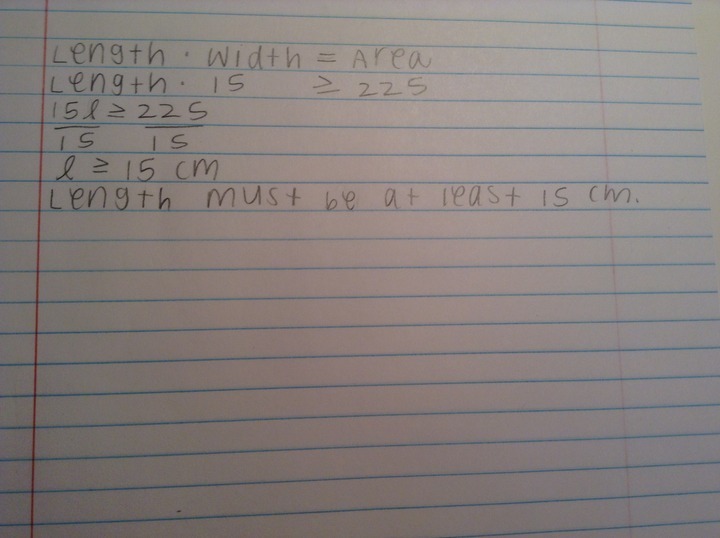 Length · Width = Area
Length · 15 ≥ 225
15l ≥ 225
15 15
l ≥ 15 cm
Length must be at least 15 cm.